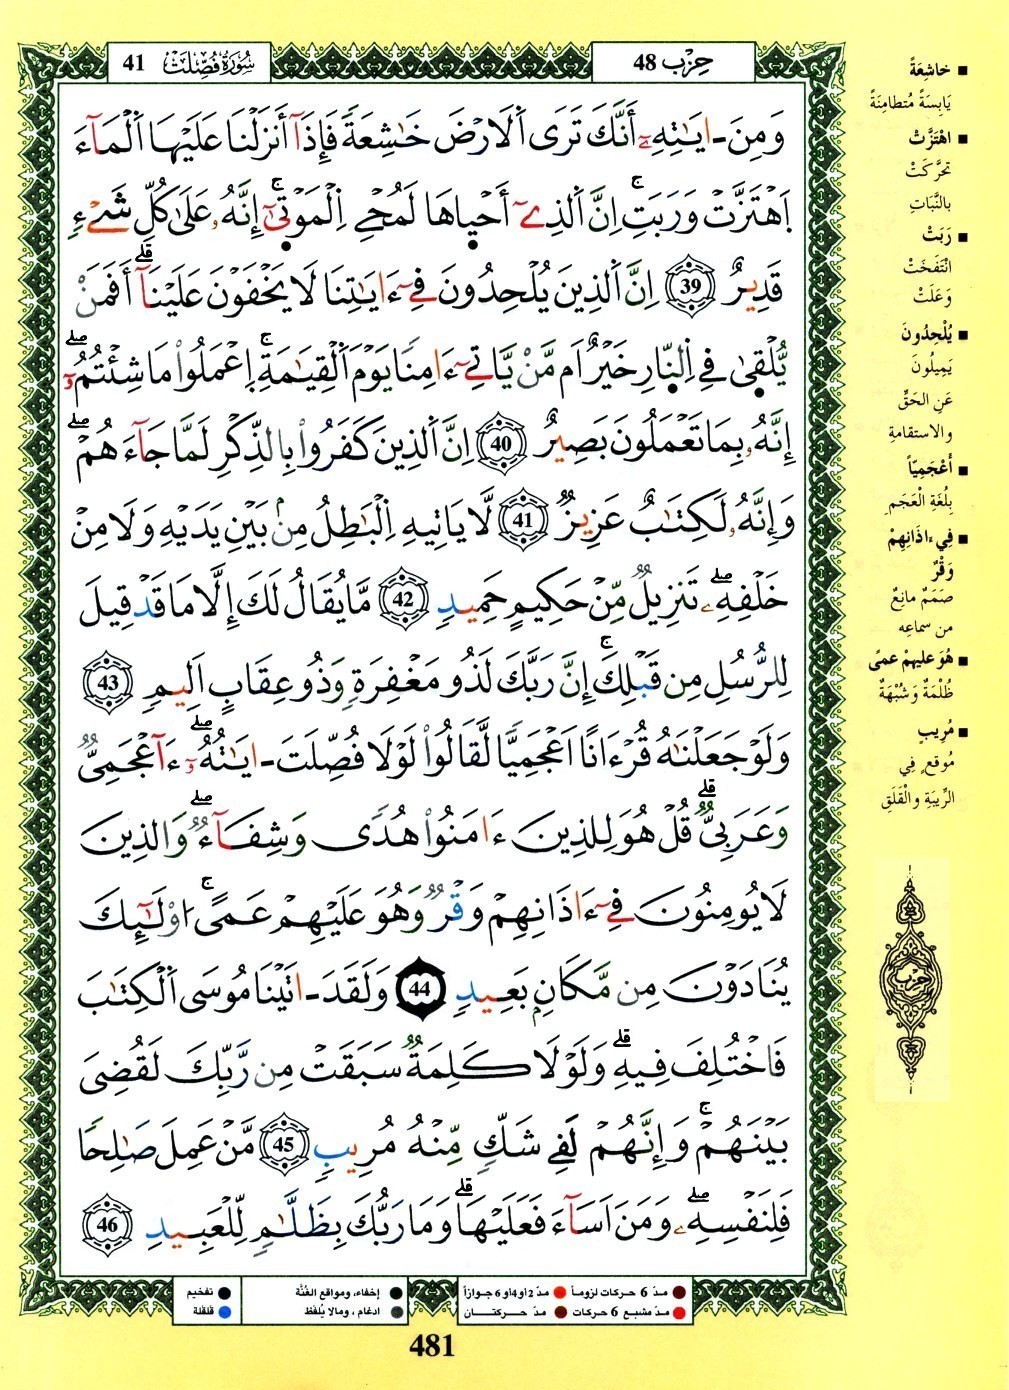 سُورَةُ فُصِّلَتْ 41
حِزْب 48
وَمِنَ ـ ايَٰتِهِۦٓ أَنَّكَ تَرَى اَلَارْضَ خَٰشِعَةً فَإِذَآ أَنزَلْنَا عَلَيْهَا اَلْمَآءَ
اَهْتَزَّتْ وَرَبَتِ إِنَّ اَلذِےٓ أَحْيِاهَا لَمُحْےِ اِلْمَوْت۪يٰٓ إِنَّهُۥ عَلَىٰ كُلِّ شَےْءٍ
قَدِيرٌ 39 اِنَّ اَلذِينَ يُلْحِدُونَ فِےٓ ءَايَٰتِنَا لَا يَخْفَوْنَ عَلَيْنَآ أَفَمَنْ
يُّلْق۪يٰ فِے اِلنّ۪ارِ خَيْرٌ اَم مَّنْ يَّاتِےٓ ءَامِناٗ يَوْمَ اَلْقِيَٰمَةِ اِعْمَلُواْ مَا شِئْتُمُۥٓ
إِنَّهُۥ بِمَا تَعْمَلُونَ بَصِيرٌ 40 اِنَّ اَلذِينَ كَفَرُواْ بِالذِّكْرِ لَمَّا جَآءَهُمْ
وَإِنَّهُۥ لَكِتَٰبٌ عَزِيزٌ 41 لَّا يَاتِيهِ اِلْبَٰطِلُ مِنۢ بَيْنِ يَدَيْهِ وَلَا مِنْ
خَلْفِهِۦ تَنزِيلٌ مِّنْ حَكِيمٍ حَمِيدٍ 42 مَّا يُقَالُ لَكَ إِلَّا مَا قَدْ قِيلَ
لِلرُّسُلِ مِن قَبْلِكَ إِنَّ رَبَّكَ لَذُو مَغْفِرَةٍ وَذُو عِقَابٍ اَلِيمٍ 43
وَلَوْ جَعَلْنَٰهُ قُرْءَاناً اَعْجَمِيّاً لَّقَالُواْ لَوْلَا فُصِّلَتَ ـ ايَٰتُهُۥٓ ءَآعْجَمِيٌّ
وَعَرَبِيٌّ قُلْ هُوَ لِلذِينَ ءَامَنُواْ هُدًى وَشِفَآءٌ وَالذِينَ
لَا يُومِنُونَ فِےٓ ءَاذَانِهِمْ وَقْرٌ وَهُوَ عَلَيْهِمْ عَمًى ا۟وْلَٰٓئِكَ
يُنَادَوْنَ مِن مَّكَانِۢ بَعِيدٍ 44 وَلَقَدَ ـ اتَيْنَا مُوسَى اَلْكِتَٰبَ
فَاخْتُلِفَ فِيهِ وَلَوْلَا كَلِمَةٌ سَبَقَتْ مِن رَّبِّكَ لَقُضِيَ
بَيْنَهُمْ وَإِنَّهُمْ لَفِے شَكٍّ مِّنْهُ مُرِيبٍ 45 مَّنْ عَمِلَ صَٰلِحاً
فَلِنَفْسِهِۦ وَمَنَ اَسَآءَ فَعَلَيْهَا وَمَا رَبُّكَ بِظَلَّٰمٍ لِّلْعَبِيدِ 46
خاشِعَةً
يَابِسَةً مُتطامِنَةً
اهْتَزَّتْ
تحَرَّكَتْ
بالنَّبَاتِ
رَبَتْ
انْتَفَخَتْ
وَعَلَتْ
يُلْحِدُونَ
يَمِيلُونَ
عَنِ الحَقِّ
والاستقامةِ
أَعْجَمِيّاً
بِلُغَةِ الْعَجَمِ
فِي ءاذَانِهِمْ
وَقْرٌ
صَمَمٌ مانِعٌ
من سماعِه
هُوَ عليهِمْ عمىً
ظُلْمَةٌ وَشُبْهَةٌ
مُرِيبٍ
مُوقعٍ فِي
الرِّيبَةِ والْقَلَقِ
حزب
مدّ 6 حركات لزوماً مدّ 2 أو 4 أو 6 جوازاً
مدّ مشبع 6 حركات مدّ حركتان
إخفاء، ومواقع الغُنَّة
ادغام، ومالا يُلفَظ
تفخيم
قلقلة
481